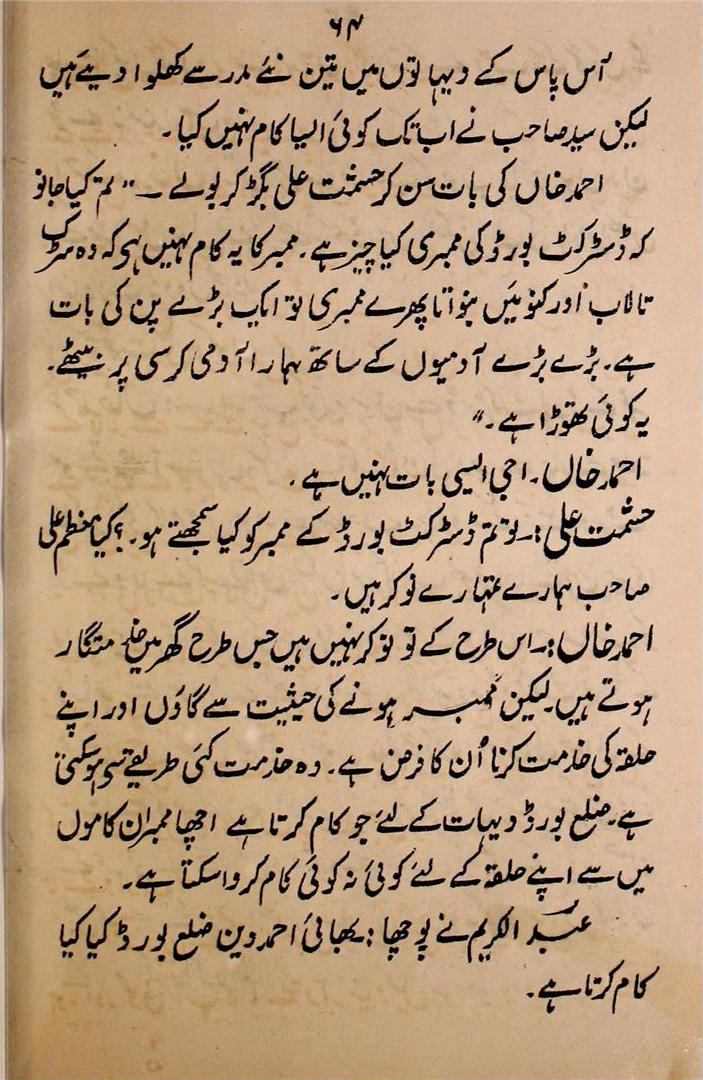 ۶۴
آس پاس کے دیہاتوں میں تین نئے مدرسے کھلوا دیے ہیں
لیکن سید صاحب نے اب تک کوئی ایسا کام نہیں کیا۔
احمد خاں کی بات سن کر حشمت علی بگڑ کر بولے ۔ "تم کیا جانو
کہ ڈسٹرکٹ بورڈ کی ممبری کیا چیز ہے۔ ممبر کا یہ کام نہیں ہے کہ وہ سڑک
تالاب اور کنوئیں بنواتا پھرے ممبری تو ایک بڑے پن کی بات
ہے۔ بڑے بڑے آدمیوں کے ساتھ ہمارا آدمی کرسی پر بیٹھے۔
یہ کوئی تھوڑا ہے۔"
احمد خاں۔ اجی ایسی بات نہیں ہے۔
حشمت علی:۔ تو تم ڈسٹرکٹ بورڈ کے ممبر کو کیا سمجھتے ہو۔؟ کیا معظم علی
صاحب ہمارے تمہارے نوکر ہیں۔
احمد خاں:۔ اس طرح کے تو نوکر نہیں ہیں جس طرح گھر میں خدمتگار
ہوتے ہیں۔ لیکن ممبر ہونے کی حیثیت سے گاؤں اور اپنے
حلقہ کی خدمت کرنا اُن کا فرض ہے۔ وہ خدمت کئی طریقے سے ہو سکتی
ہے۔ ضلع بورڈ دیہات کے لئے جو کام کرتا ہے اچھا ممبر ان کاموں
میں سے اپنے حلقہ کے لئے کوئی نہ کوئی کام کروا سکتا ہے۔
عبد الکریم نے پوچھا:۔ بھائی احمد دین ضلع بورڈ کیا کیا
کام کرتا ہے۔